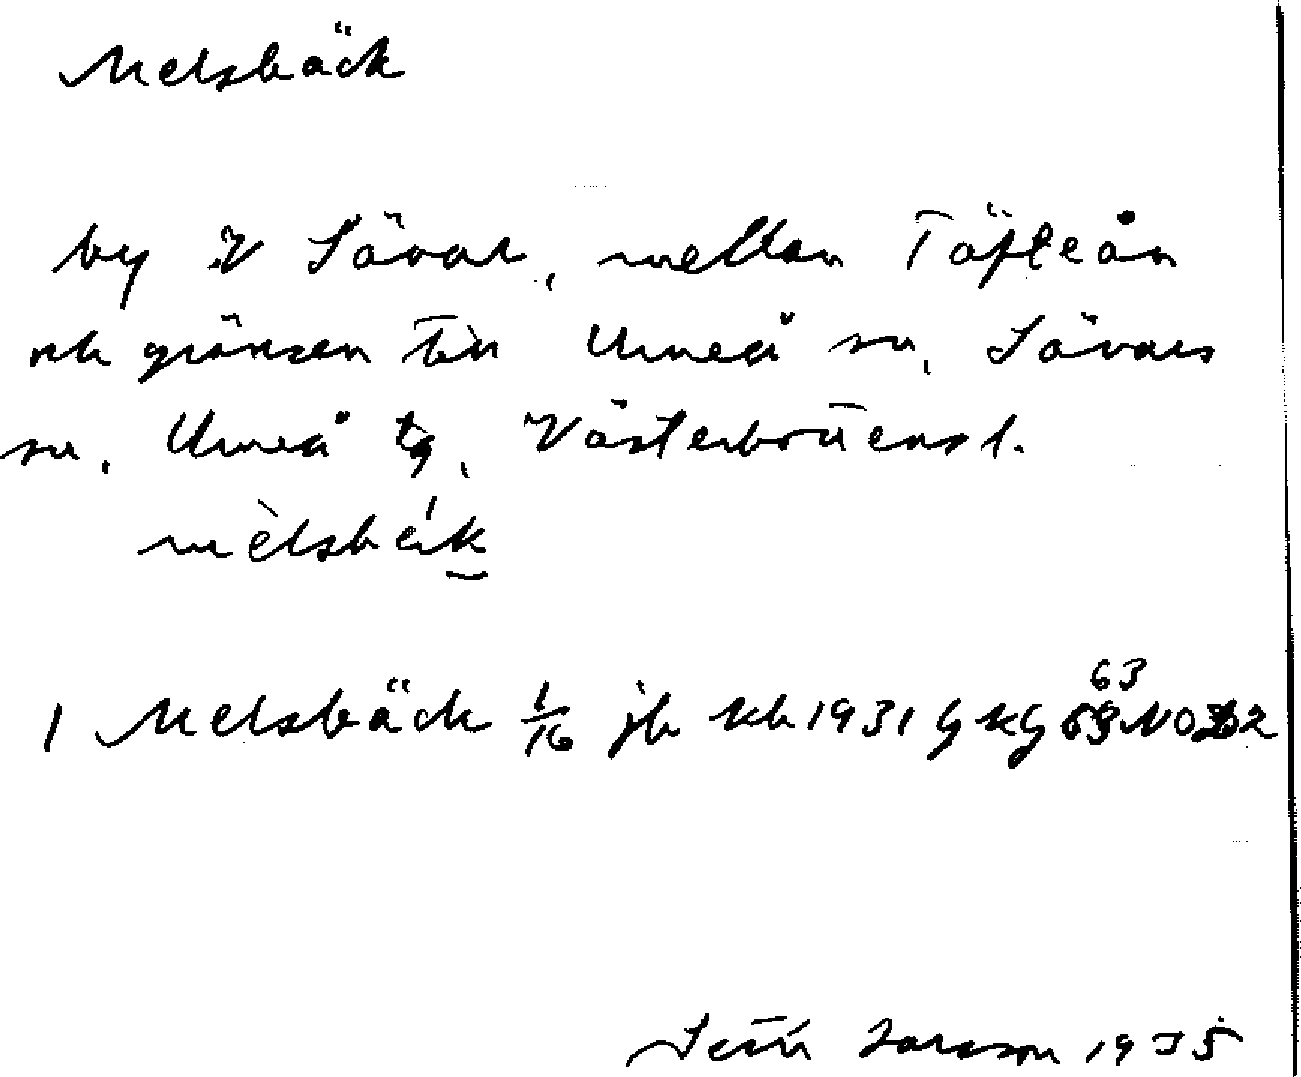 Melsbäck
by V Sävar, mellan Täfteån
och gränsen till Umeå sn, Sävars
sn, Umeå tg, Västerbottens l.
1 Melsbäck 1/16 jb kb 1931 G kg 63 NO 2
Seth Larsson 1935